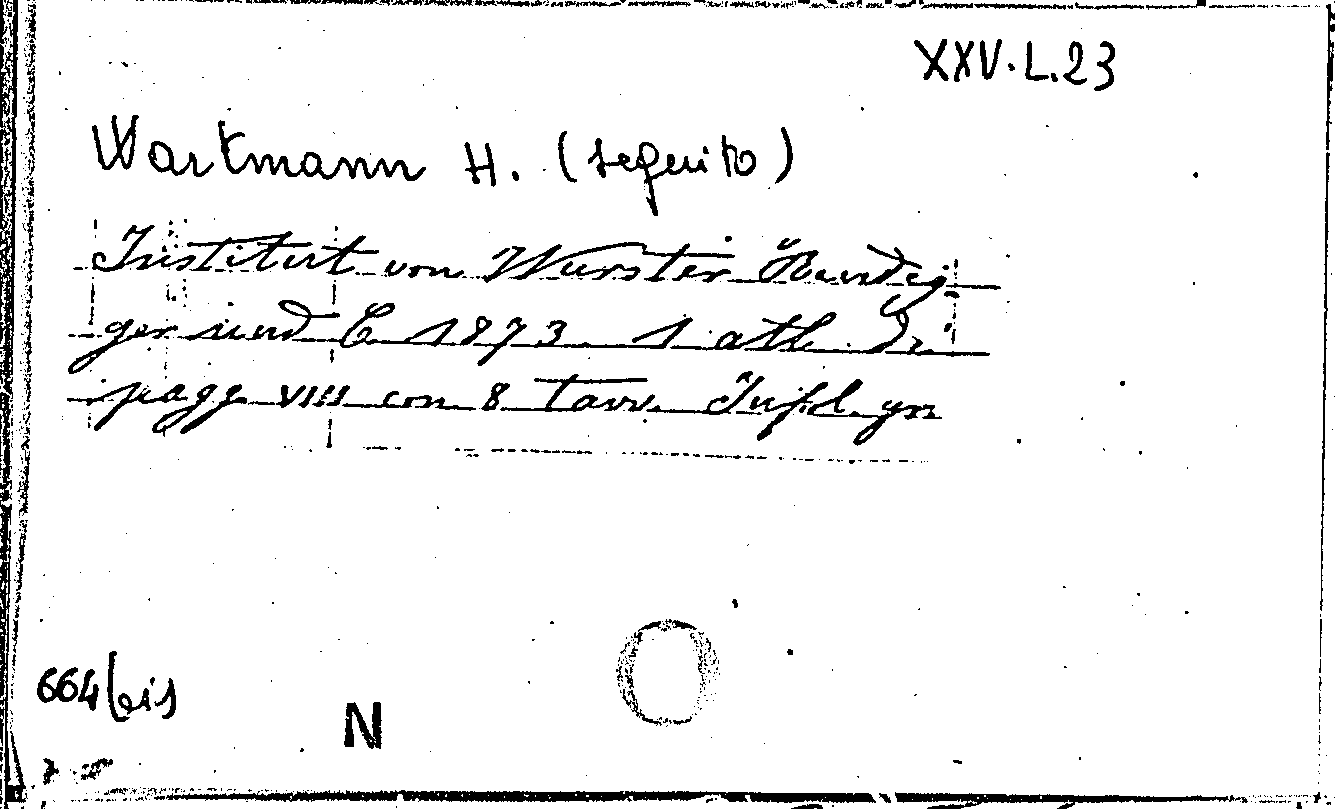 XXV.L.23
Wartmann H. (seguito)
Institut von Wurster Randeg
ger und C 1873. 1 atl. Gr.
pagg VIII con 8 tavv.
664 bis
N